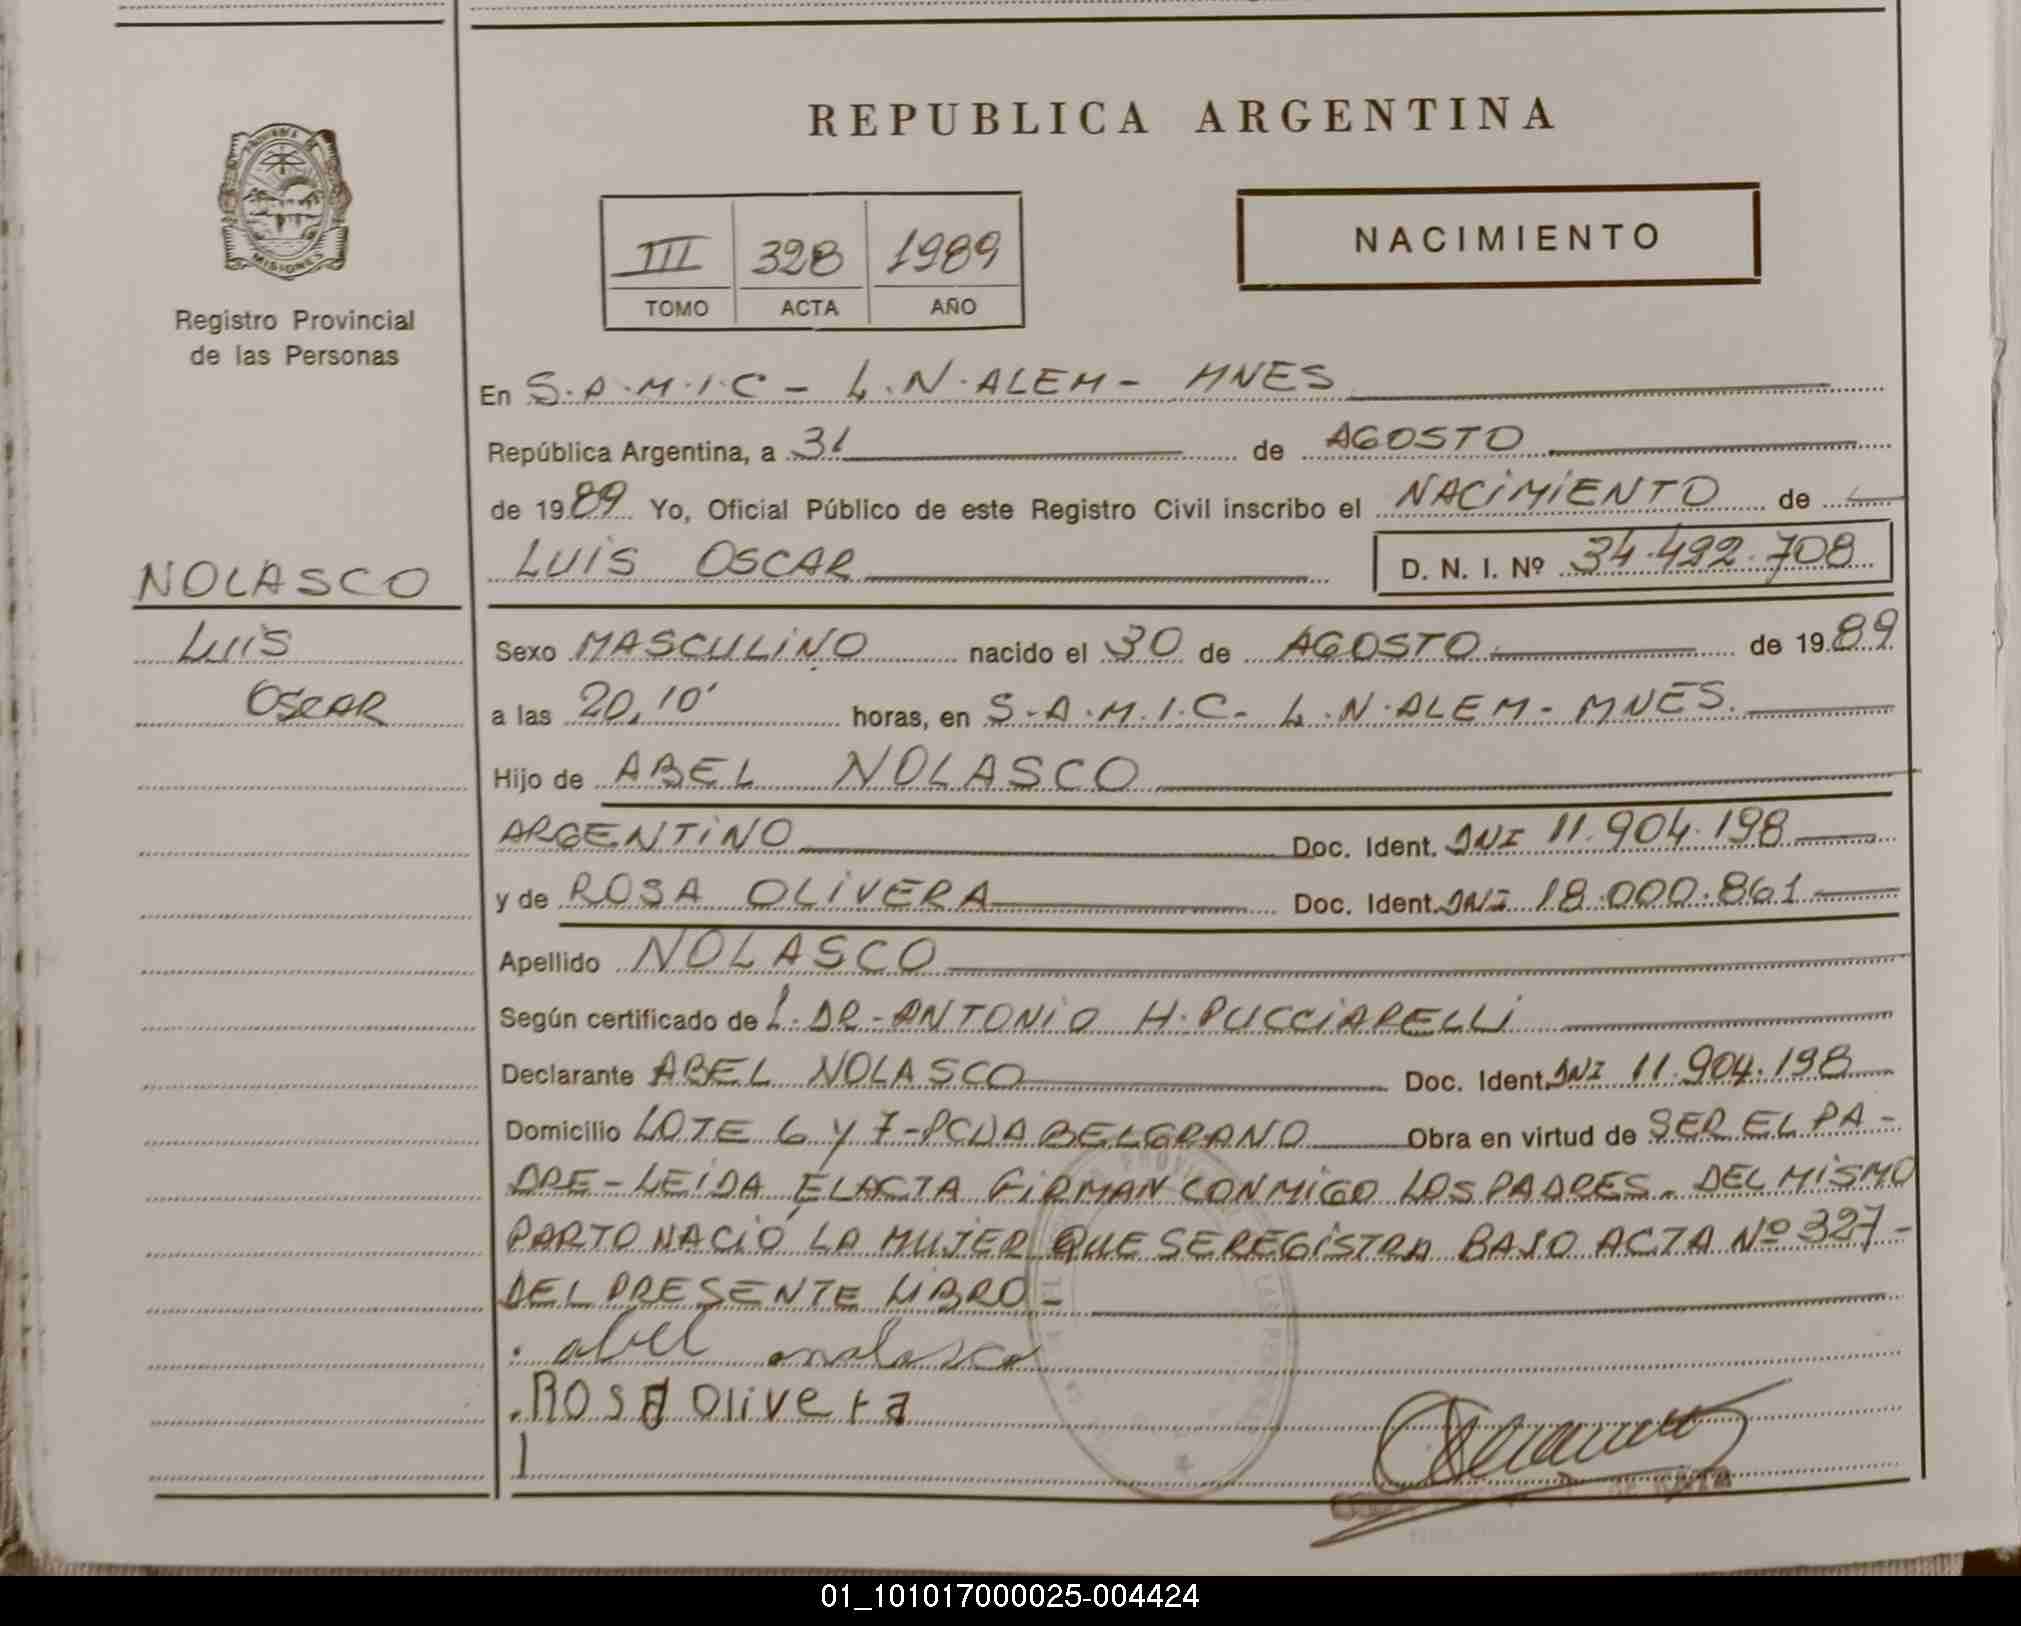 REPUBLICA ARGENTINA
PROVINCIA DE
MISIONES
Registro Provincial
de las Personas
III 328 1989
TOMO ACTA AÑO
NACIMIENTO
En S.A.M.I.C - L.N.ALEM - MNES
República Argentina, a 31 de AGOSTO
de 1989 Yo, Oficial Público de este Registro Civil inscribo el NACIMIENTO de
LUIS OSCAR D. N. I. Nº 34.492.708
NOLASCO
LUIS
OSCAR
Sexo MASCULINO nacido el 30 de AGOSTO de 1989
a las 20,10' horas, en S.A.M.I.C- L.N.ALEM- MNES.
Hijo de ABEL NOLASCO
ARGENTINO Doc. Ident. DNI 11.904.198
y de ROSA OLIVERA Doc. Ident. DNI 18.000.861
Apellido NOLASCO
Según certificado de L. DR-ANTONIO H. PUCCIARELLI
Declarante ABEL NOLASCO Doc. Ident. DNI 11.904.198
Domicilio LOTE 6 y 7-PCDA BELGRANO Obra en virtud de SER EL PA-
DRE-LEIDA EL ACTA FIRMAN CONMIGO LOS PADRES. DEL MISMO
PARTO NACIÓ LA MUJER QUE SE REGISTRA BAJO ACTA Nº 327-
DEL PRESENTE LIBRO-
abel nolasco
ROSA Olivera
01_101017000025-004424